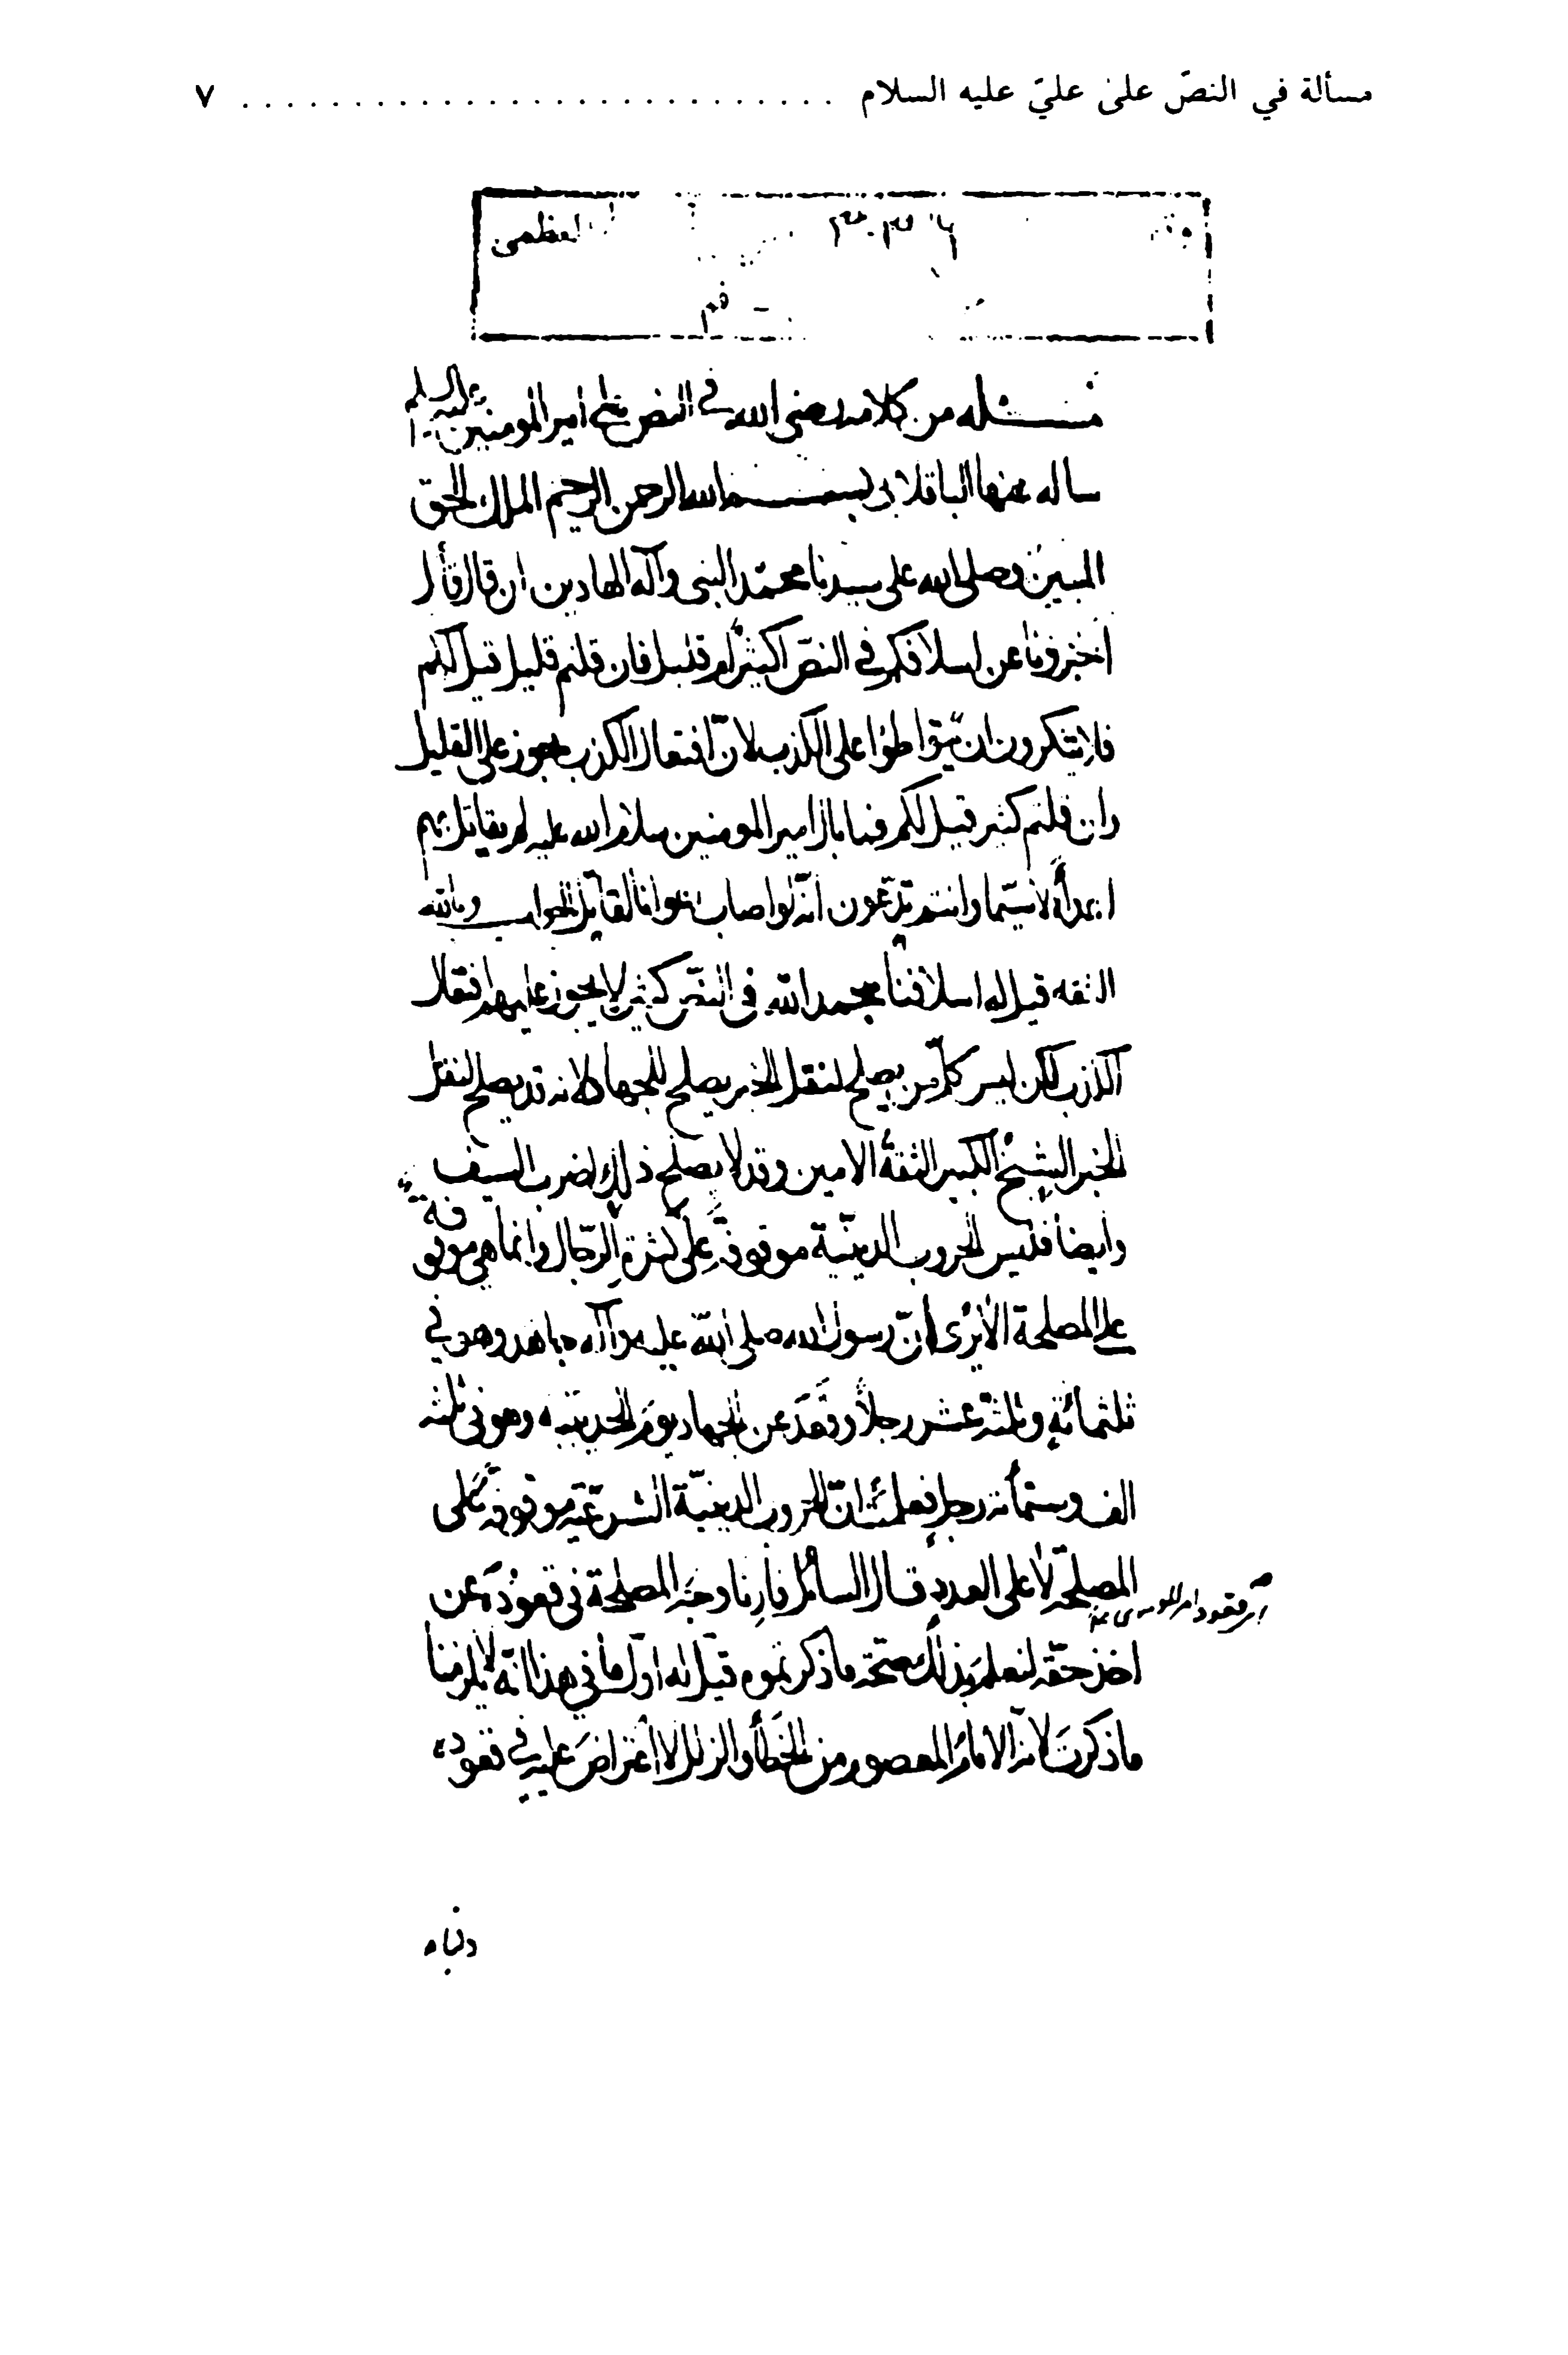 مسألة في النصّ على عليّ عليه السلام . . . . . . . . . . . . . . . . . . . . . . . . . . . ٧
العظمى
قم
مسئله من كلامه رضى الله فى النص على امير المومنين عليه السلم
ساله عنها الباقلانى بسم الله الرحمن الرحيم الملك الحق
المبين وصلى الله على سيدنا محمّد النبى وآله الهادين ان قال قائل
اخبرونا عن اسلافكم في النصّ اكثيرٌ ام قليل فان قلتم قليل قيل لكم
فلا تنكرون ان يتواطؤا على الكذب لانّ افتعال الكذب يجوز على القليل
وان قلتم كثير قيل لكم فما بال امير المومنين سلام الله عليه لم يقاتل بهم
اعداءه لا سيّما وانتم تدّعون انّه لو اصاب اعوانا لقاتل الجواب وبالله
الثقه قيل له اسلافنا بحمد الله فى النصّ كثير لا يجوز عليهم افتعال
الكذب لكن ليس كلّ من يصلح لنقل الخبر يصلح للجهاد لانه قد يصلح لنقل
الخبر الشيخ الكبير الثقة الامين وقد لا يصلح ذلك لضرب السيف
وايضا فليس الحروب الدينيّة موقوفة على كثرة الرّجال وانما هي موقوفة
على المصلحة الا ترى انّ رسول الله صلى الله عليه وآله جاهد وهو في
ثلثمائة وثلثة عشر رجلاً وقعد عن الجهاد يوم الحديبيه وهو فى ثلثه
الف وستمأئة رجل فعلمنا انّ الحروب الدينيّة الشرعيّة موقوفة على
المصلحة لا على العدد قال السائل فأرنا وجه المصلحة في قعوده عن
اخذ حقّه لنعلم بذلك صحّة ما ذكرتموه قيل له اوّل ما في هذا انّه لا يلزمنا
ما ذكرت لانه الامام المعصوم من الخطأ والزلل لا اعتراض عليه في قعوده